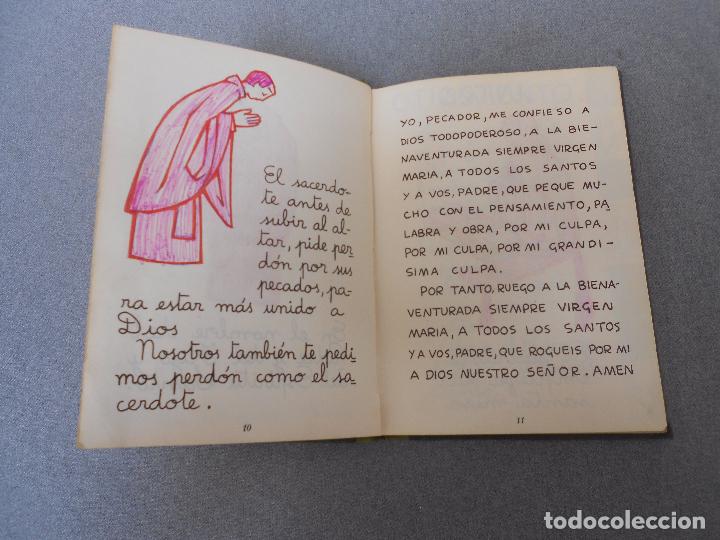 El sacerdo-
te antes de
subir al al-
tar, pide per-
dón por sus
pecados, pa-
ra estar más unido a
Dios
Nosotros también te pedi
mos perdón como el sa-
cerdote.
10
YO, PECADOR, ME CONFIESO A
DIOS TODOPODEROSO, A LA BIE-
NAVENTURADA SIEMPRE VIRGEN
MARIA, A TODOS LOS SANTOS
Y A VOS, PADRE, QUE PEQUE MU-
CHO CON EL PENSAMIENTO, PA
LABRA Y OBRA, POR MI CULPA,
POR MI CULPA, POR MI GRANDI-
SIMA CULPA.
POR TANTO, RUEGO A LA BIENA-
VENTURADA SIEMPRE VIRGEN
MARIA, A TODOS LOS SANTOS
Y A VOS, PADRE, QUE ROGUEIS POR MI
A DIOS NUESTRO SEÑOR. AMEN
11
todocoleccion.net